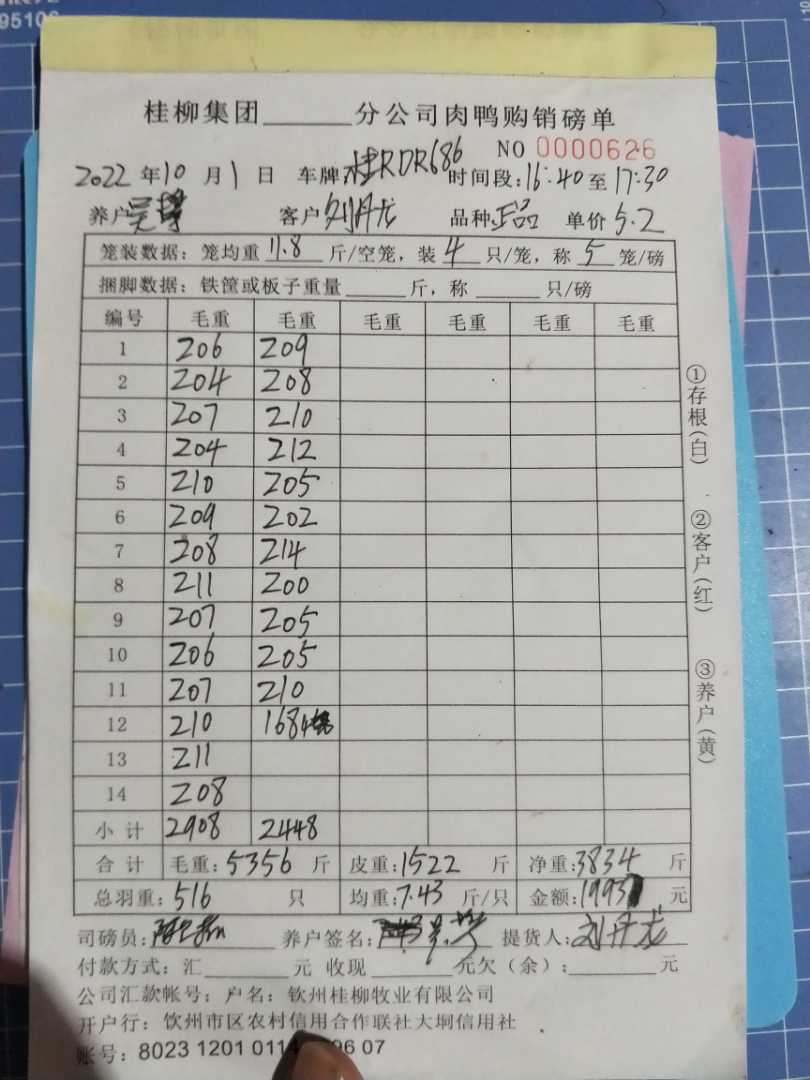 95106
桂柳集团______分公司肉鸭购销磅单
NO 0000626
2022年10月1日 车牌:桂RDR686 时间段:16:40至17:30
养户 客户刘丹龙 品种:正品 单价5.2
笼装数据:笼均重11.8斤/空笼,装4只/笼,称5笼/磅
捆脚数据:铁筐或板子重量______斤,称______只/磅
编号 毛重 毛重 毛重 毛重 毛重 毛重
1 206 209
2 204 208
3 207 210
4 204 212
5 210 205
6 209 202
7 208 214
8 211 200
9 207 205
10 206 205
11 207 210
12 210 168
13 211
14 208
小计 2908 2448
合计 毛重:5356斤 皮重:1522斤 净重:3834斤
总羽重:516只 均重:7.43斤/只 金额:1993元
司磅员: 养户签名: 提货人:刘丹龙
付款方式:汇______元 收现______元欠(余):______元
公司汇款帐号:户名:钦州桂柳牧业有限公司
开户行:饮州市区农村信用合作联社大垌信用社
账号:8023 1201 011 06 07
①存根(白)
②客户(红)
③养户(黄)